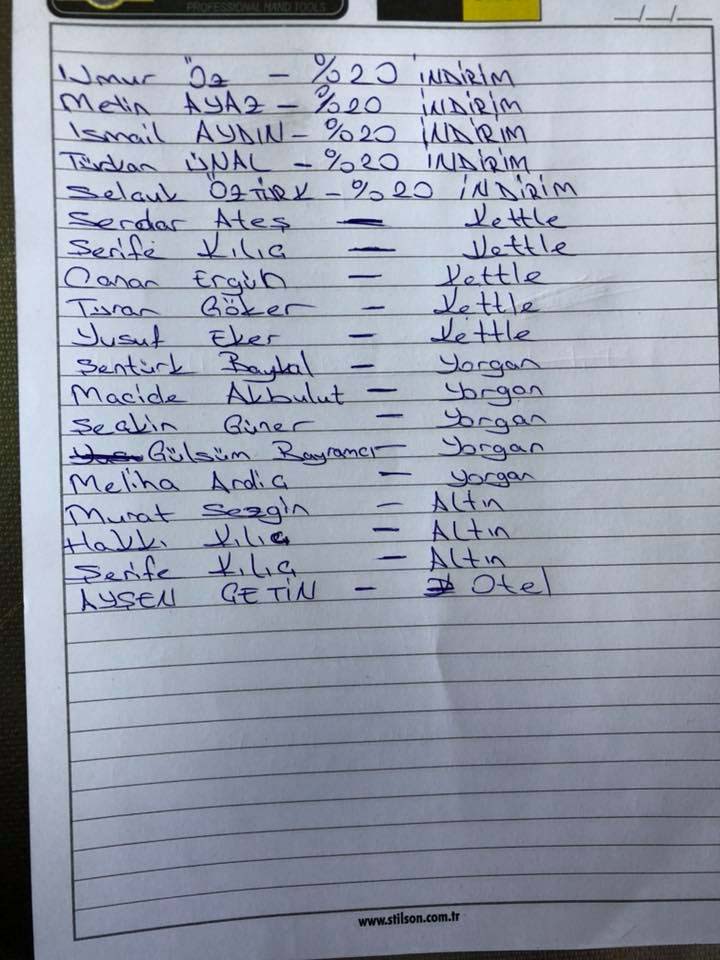 PROFESSIONAL HAND TOOLS
__/__/__
Nmur Öz - %20 İNDİRİM
Metin AYAZ - %20 İNDİRİM
İsmail AYDIN - %20 İNDİRİM
Türkan ÜNAL - %20 İNDİRİM
Selçuk ÖZTÜRK - %20 İNDİRİM
Serdar Ateş - Kettle
Şerife Kılıç - Kettle
Canan Ergün - Kettle
Turan Göker - Kettle
Yusuf Eker - Kettle
Şentürk Baykal - Yorgan
Macide Akbulut - Yorgan
Seçkin Güner - Yorgan
Gülsüm Bayramcı - Yorgan
Meliha Ardıç - Yorgan
Murat Sezgin - Altın
Hakkı Kılıç - Altın
Şerife Kılıç - Altın
AYŞEN ÇETİN - Otel
www.stilson.com.tr